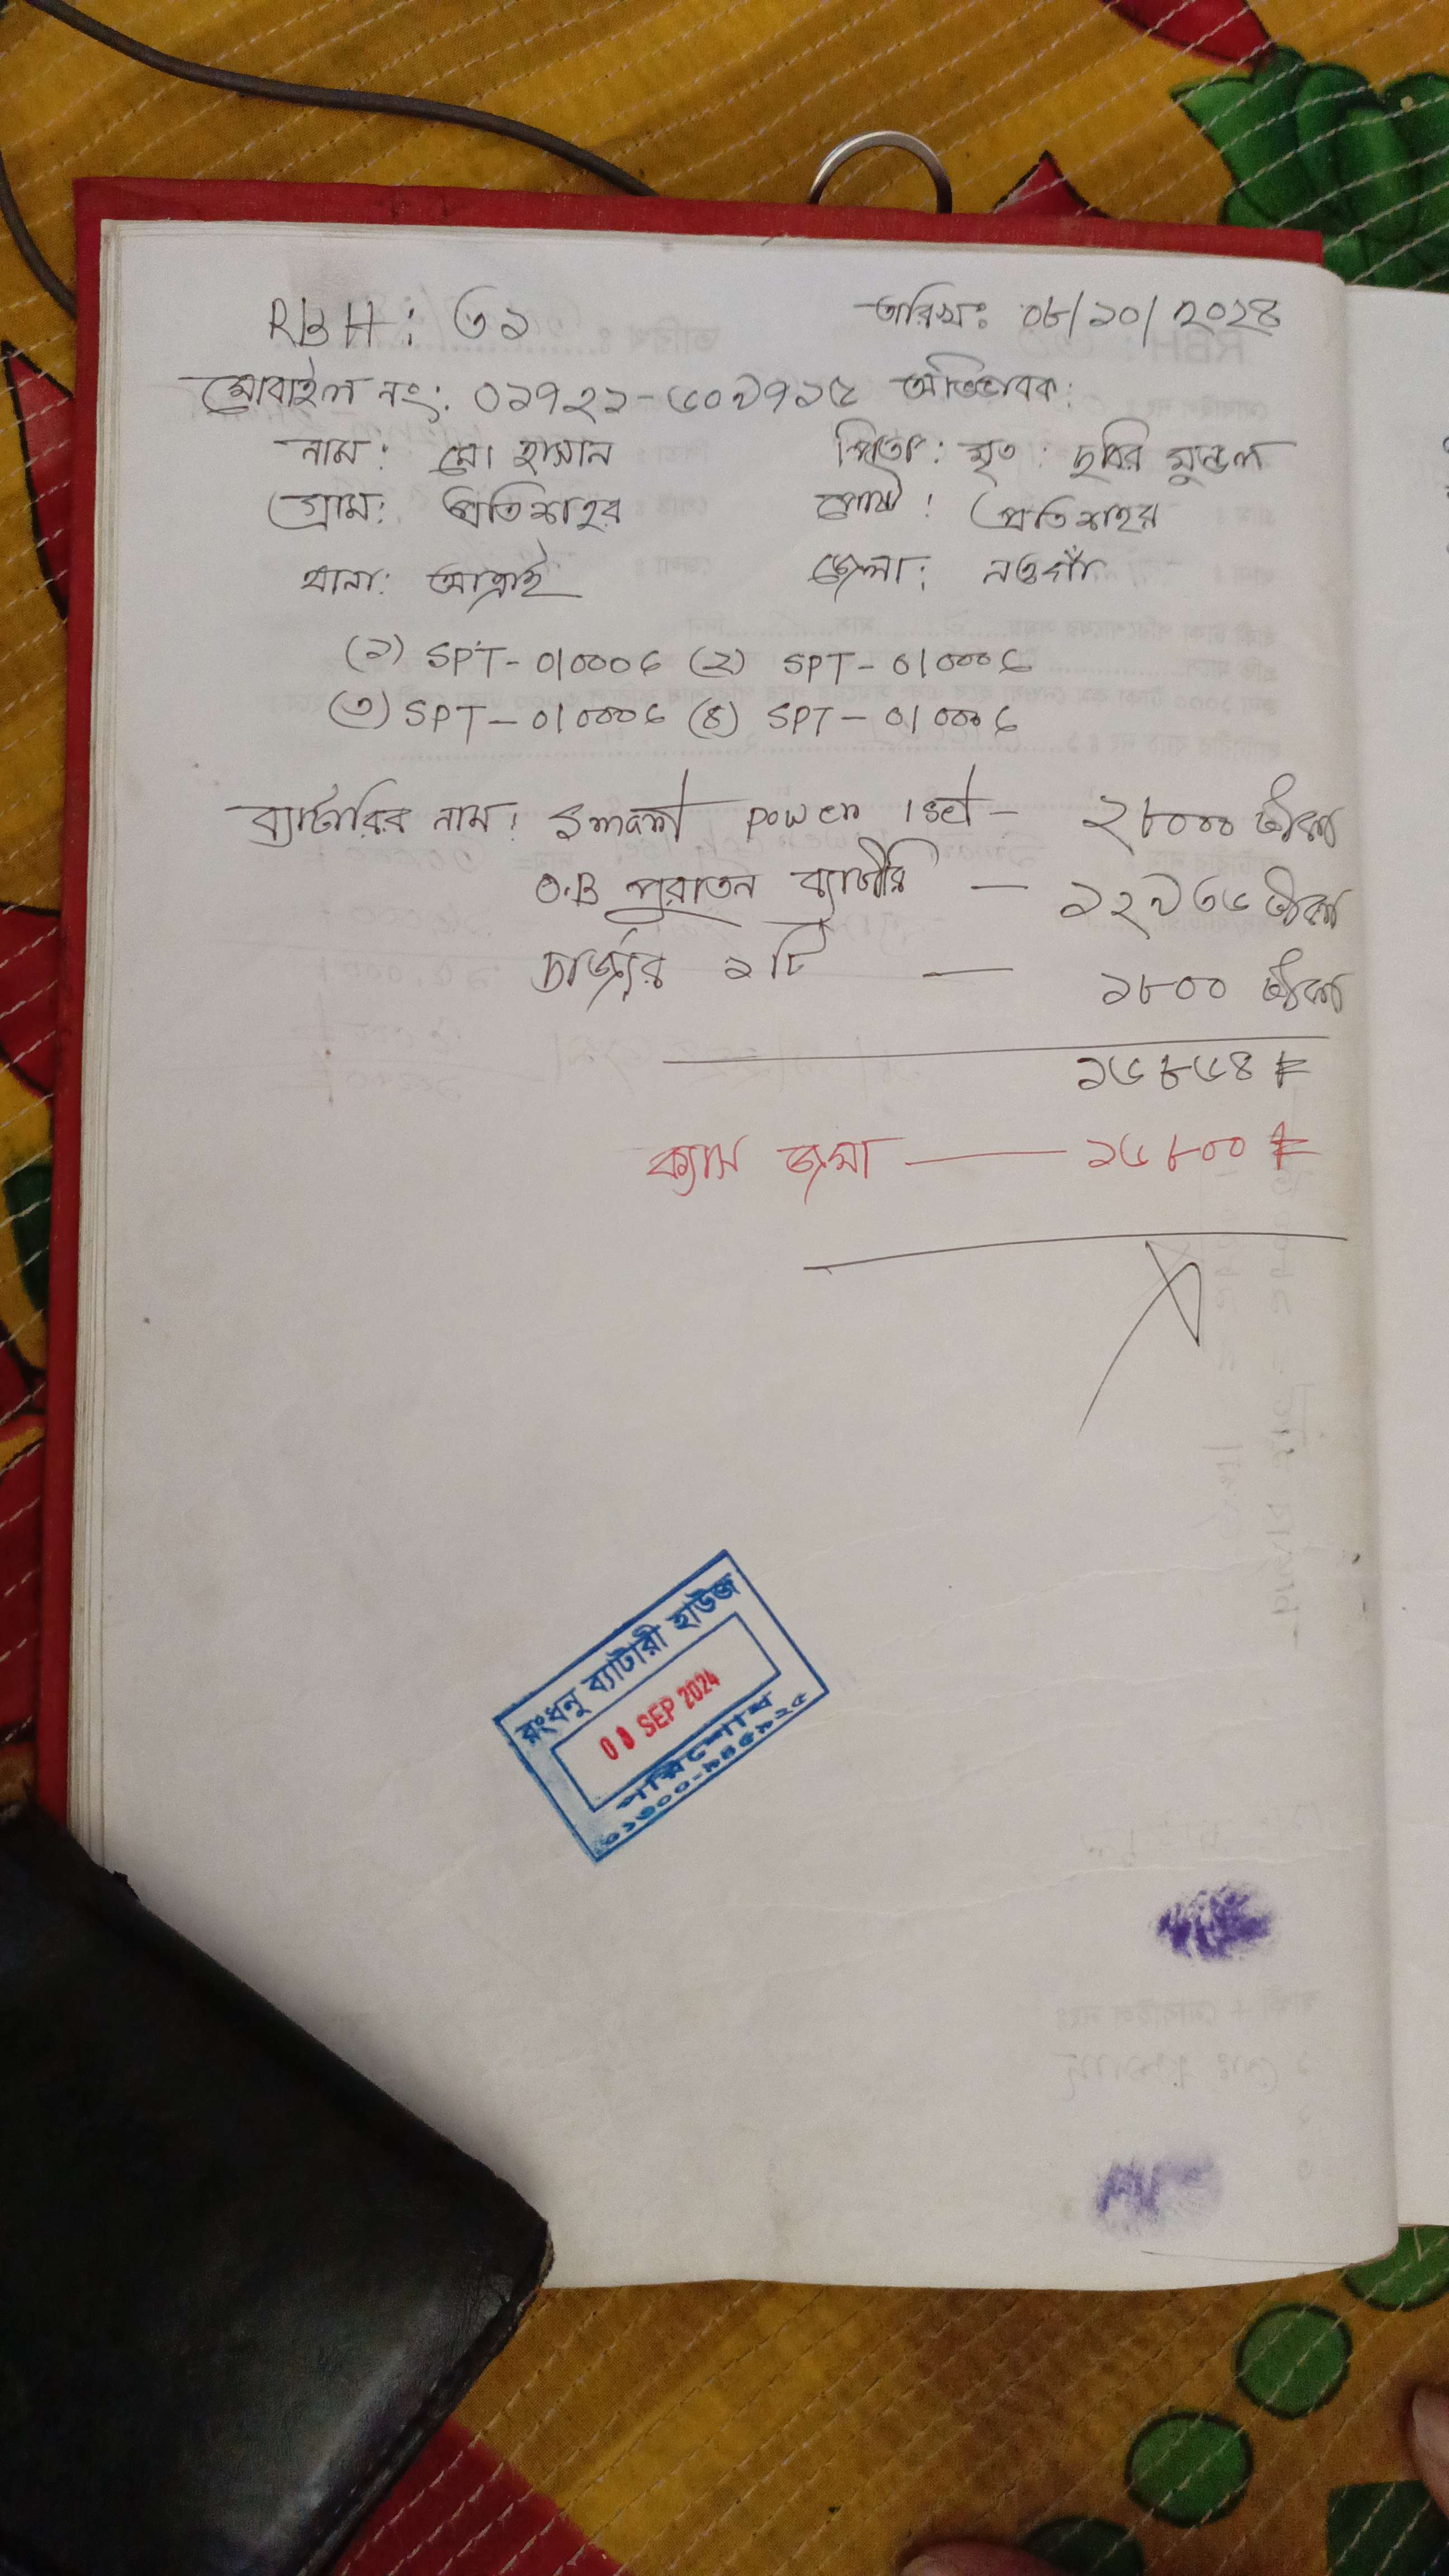 RBH: ৩১ তারিখ: ০৮/১০/২০২৪
মোবাইল নং: ০১৭২১-৬০৯৭১৫ অভিভাবক:
নাম: মো হাসান পিতা: মৃত: ছবির মন্ডল
গ্রাম: প্রতিশাহর পোষ্ট: প্রতিশাহর
থানা: আত্রাই জেলা: নওগাঁ
(১) SPT-010006 (২) SPT-010006
(৩) SPT-010006 (৪) SPT-010006
ব্যাটারির নাম: Smart power 1set- ২৮০০০ টাকা
O.B পুরাতন ব্যাটারি — ১২৯৩৬ টাকা
চার্জার ১টি — ১৮০০ টাকা
১৬৮৬৪ ৳
ক্যাস জমা — ১৬৮০০ ৳
রংধনু ব্যাটারী হাউজ
SEP 2024
পরিশোধ